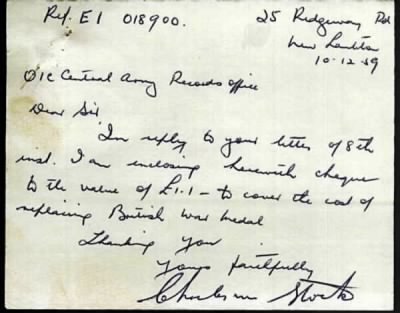 Ref. E1 018900.
25 Ridgeway Rd
New Lambton
10-12-59
O i c Central Army Records Office
Dear Sir
In reply to your letter of 8th
inst. I am enclosing herewith cheque
to the value of £1.1- to cover the cost of
replacing British War Medal
Thanking you
Yours faithfully
Stocks